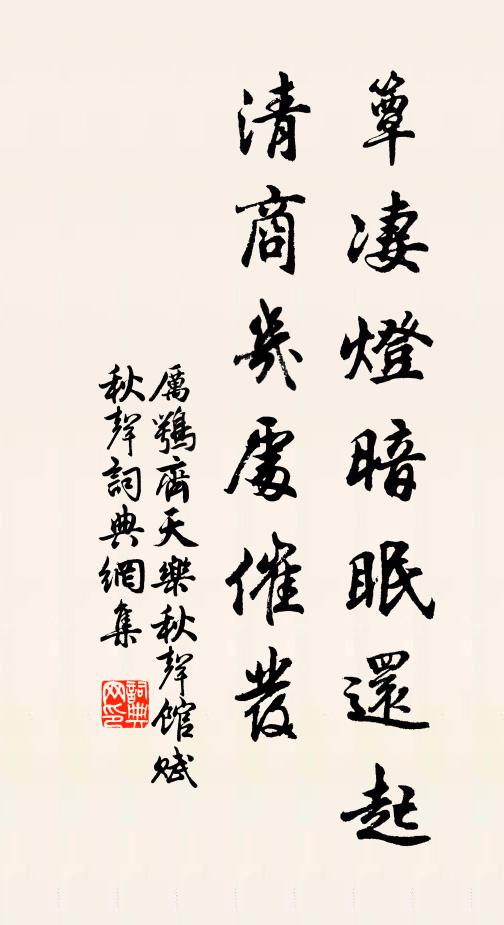 簟凄燈暗眠還起
清商幾處催發
厲鶚齊天樂秋聲館賦
秋聲詞典網集
詞典网印